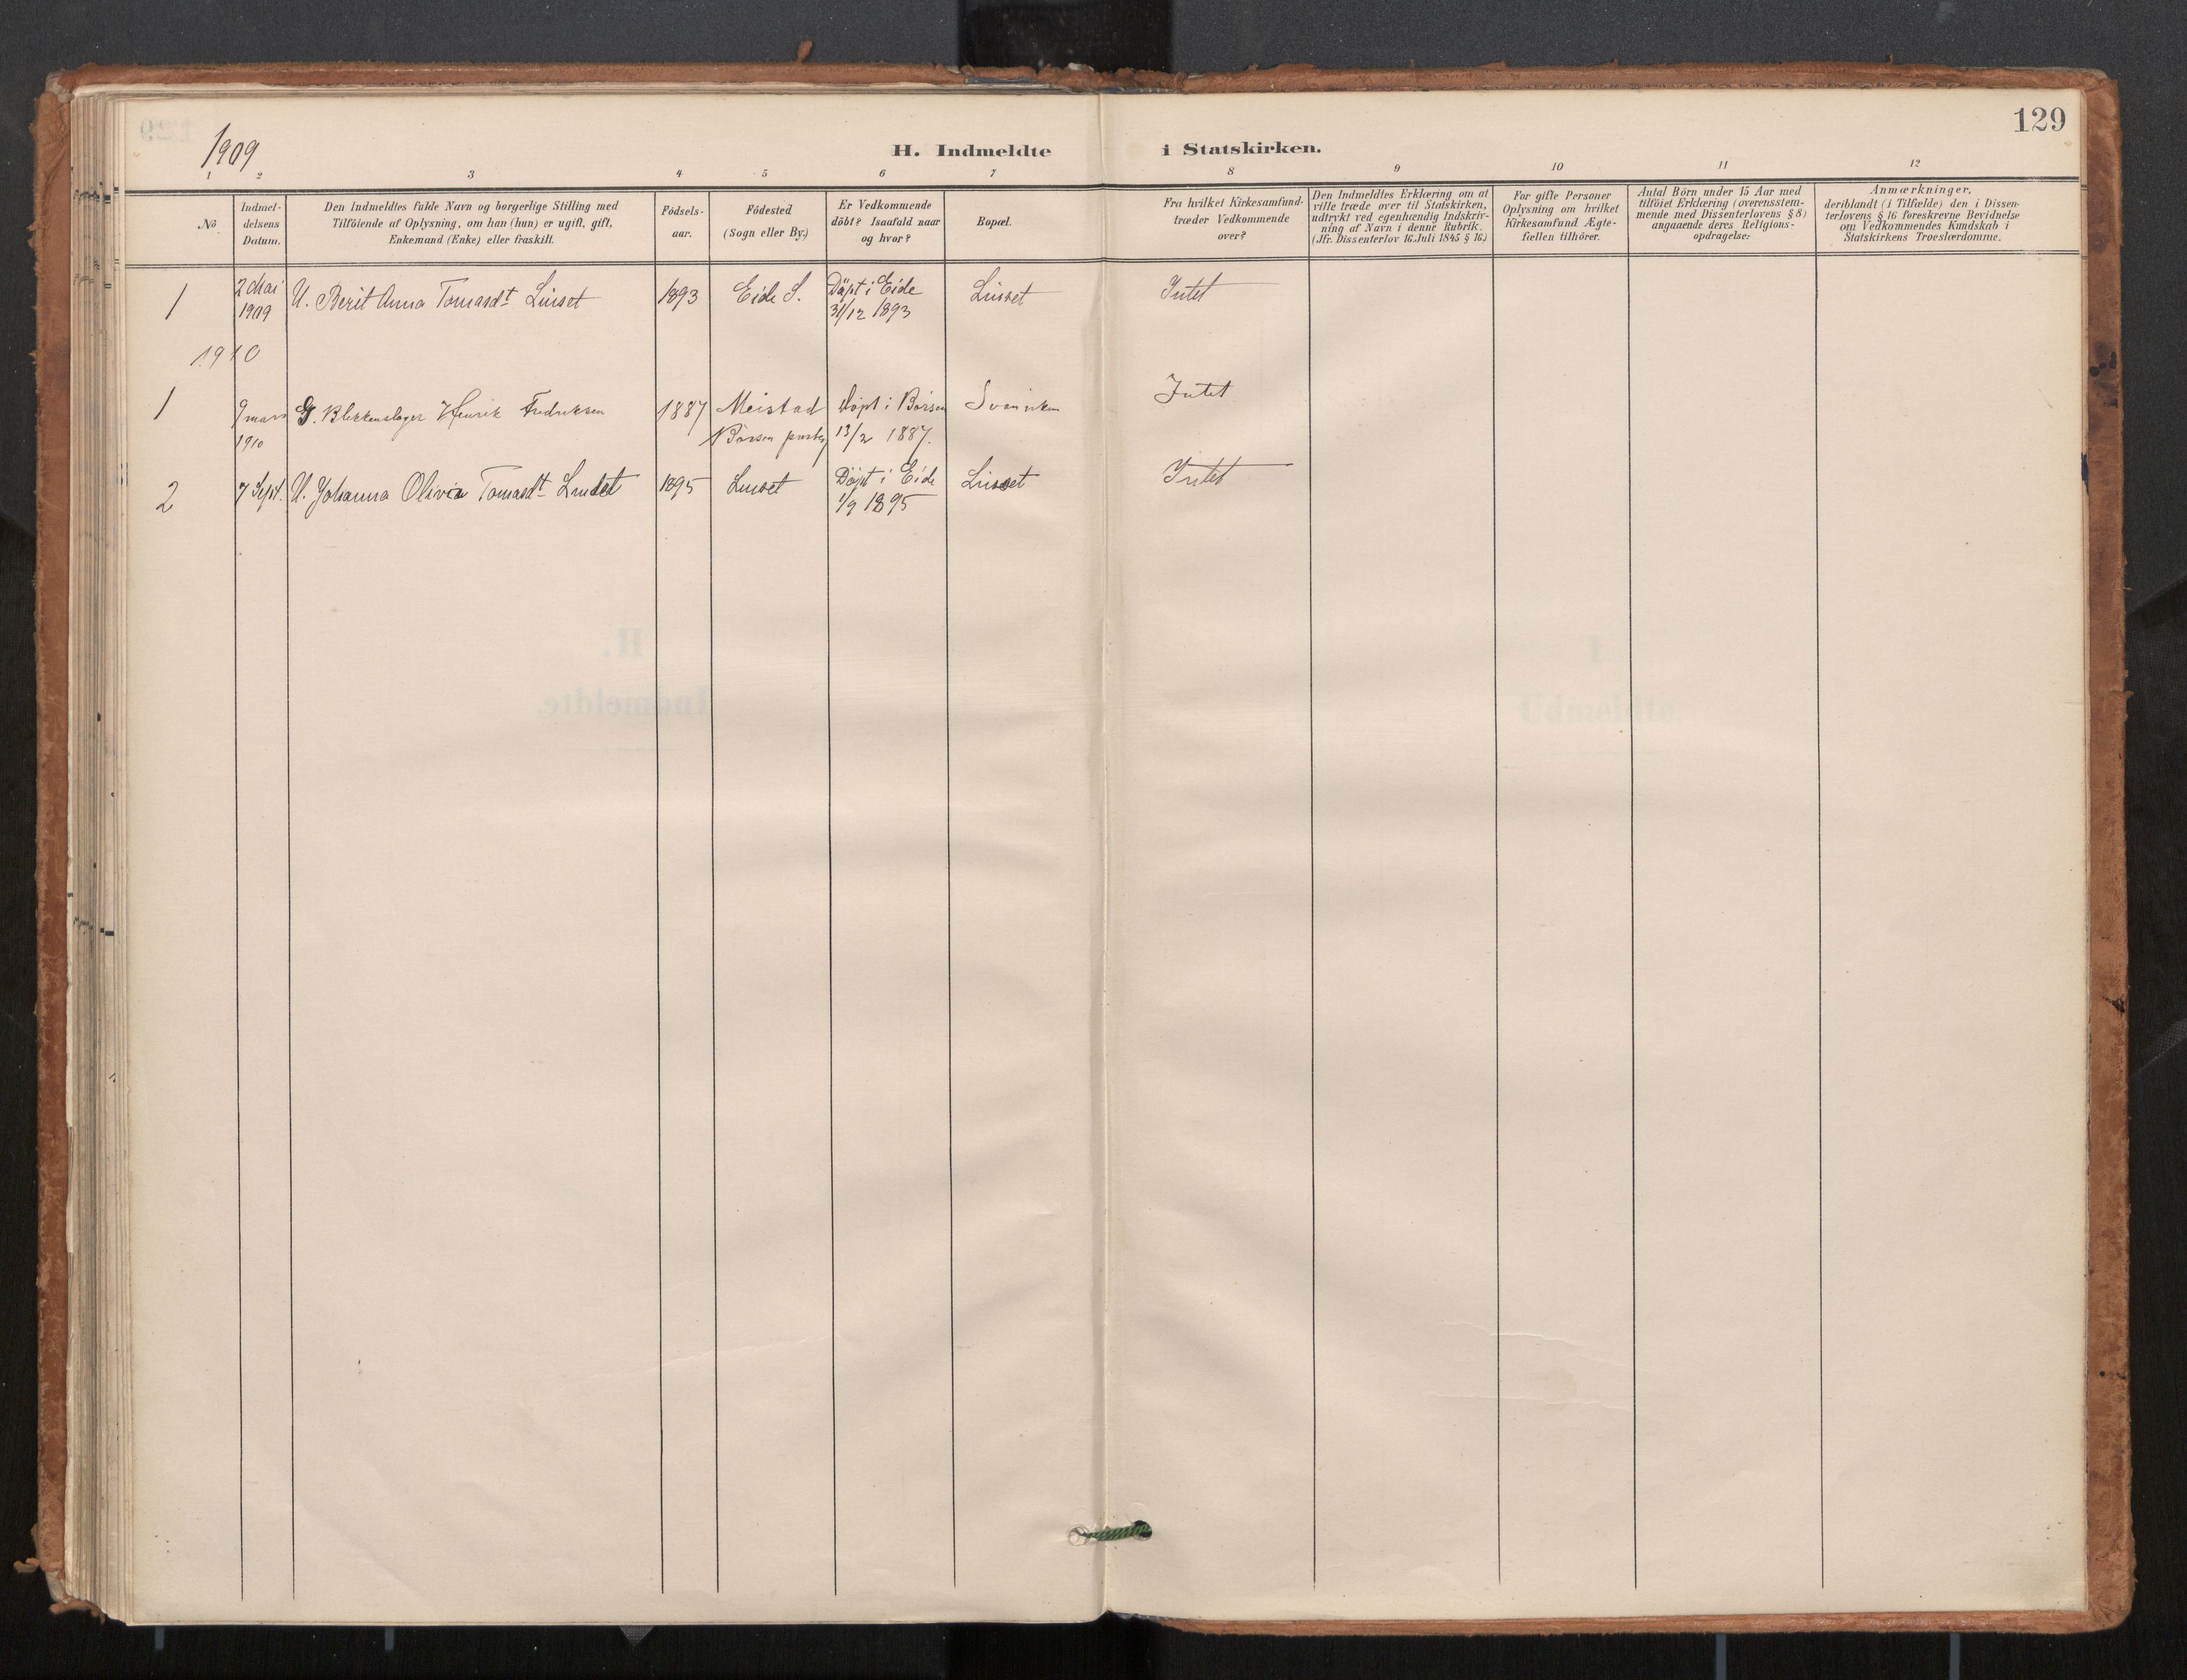 129
1909
H. Indmeldte i Statskirken.
1 2 3 4 5 6 7 8 9 10 11 12
No.
Indmel-
delsens
Datum.
Den Indmeldtes fulde Navn og borgerlige Stilling med
Tilföiende af Oplysning, om han (hun) er ugift, gift,
Enkemand (Enke) eller fraskilt.
Födsels-
aar.
Födested
(Sogn eller By.)
Er Vedkommende
döbt? Isaafald naar
og hvor?
Bopæl.
Fra hvilket Kirkesamfund
træder Vedkommende
over?
Den Indmeldtes Erklæring om at
ville træde over til Statskirken,
udtrykt ved egenhændig Indskriv-
ning af Navn i denne Rubrik.
(Jfr. Dissenterlov 16. Juli 1845 § 16.)
For gifte Personer
Oplysning om hvilket
Kirkesamfund Ægte-
fællen tilhörer.
Antal Börn under 15 Aar med
tilföiet Erklæring (overensstem-
mende med Dissenterlovens § 8)
angaaende deres Religions-
opdragelse:
Anmærkninger,
deriblandt (i Tilfælde) den i Dissen-
terlovens § 16 foreskrevne Bevidnelse
om Vedkommendes Kundskab i
Statskirkens Troeslærdomme.
1 2 Mai U. Berit Anna Tomasdt Linset 1893 Eide S. Döpt i Eide Linset Intet
1909 31/12 1893
1910
1 9 mars G. Blikkenslager Henrik Fredriksen 1887 Meistad Döpt i Börsen Intet
1910 Börsen 13/2 1887.
2 7 Sept. U. Johanna Olivia Tomasdt Linset 1895 Linset Döpt i Eide Linset Intet
1/9 1895